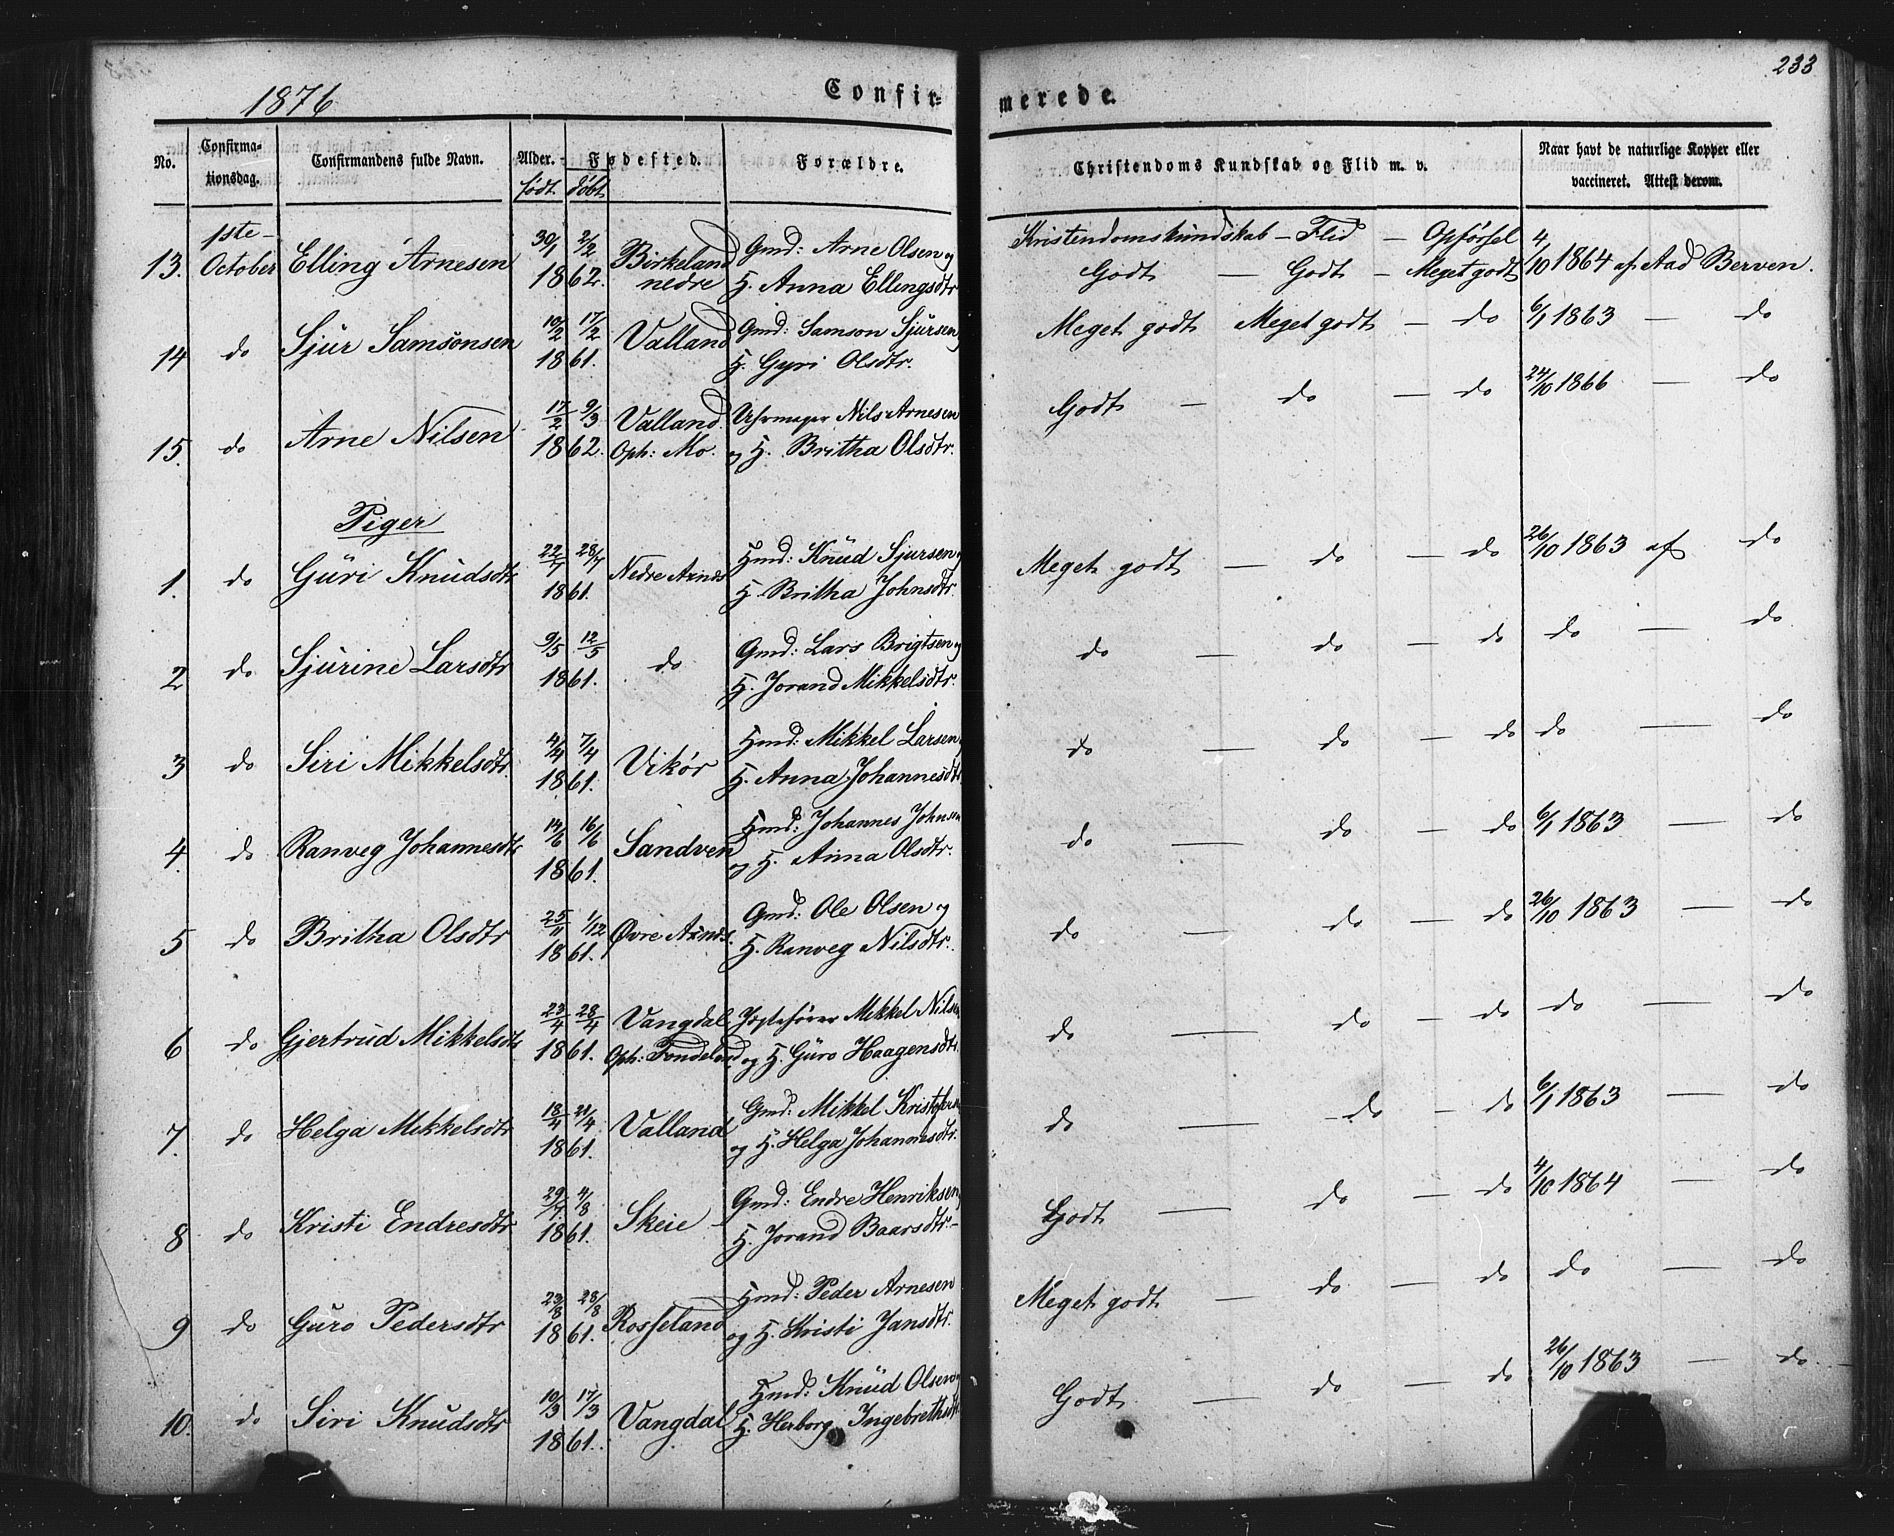 233
1876
Confir-
merede.
No.
Confirma-
tionsdag.
Confirmandens fulde Navn.
Alder.
født
Fødested.
døbt
Forældre.
Christendoms Kundskab og Flid m. v.
Naar havt de naturlige Kopper eller
vaccineret. Attest derom.
1ste
Kristendomskundskab – Flid – Opførsel
13. October Elling Arnesen 30/1 2/2 1862. Birkeland nedre Gmd: Arne Olsen og H. Anna Ellingsdtr Godt — Godt – Meget godt 4/10 1864 af Aad Berven.
14 do Sjur Samsonsen 10/2 17/2 1861. Valland Gmd: Samson Sjursen og H. Gyri Olsdtr. Meget godt Meget godt — do 6/1 1863 — do
15. do Arne Nilsen 17/2 9/3 1862. Valland. Oph: Mo. Uhrmager Nils Arnesen og H. Britha Olsdtr. Godt — do — do 24/10 1866 — do
Piger
1. do Guri Knudsdtr 22/7 28/7 1861. Nedre Axnes Hmd: Knud Sjursen og H. Britha Johnsdtr. Meget godt — do — do 26/10 1863 af do
2 do Sjurine Larsdtr 9/5 12/5 1861. do Gmd: Lars Brigtsen og H. Jorand Mikkelsdtr. do — do — do do — do
3 do Siri Mikkelsdtr. 4/4 7/4 1861. Vikør Hmd: Mikkel Larsen og H. Anna Johannesdtr do — do — do do — do
4. do Ranveg Johannesdtr 14/6 16/6 1861. Sandven Hmd: Johannes Johnsen og H. Anna Olsdtr. do — do — do 6/1 1863 — do
5 do Britha Olsdtr 25/11 1/12 1861. Øvre Axnes. Gmd: Ole Olsen og H. Ranveg Nilsdtr. do — do — do 26/10 1863 — do
6 do Gjertrud Mikkelsdtr 23/4 28/4 1861. Vangdal Oph: Tondeland Jægtefører Mikkel Nilsen og H. Guro Haagensdtr. do — do — do do — do
7. do Helga Mikkelsdtr 18/4 21/4 1861. Valland Gmd: Mikkel Kristofersen og H. Helga Johannesdtr. do — do – do 6/1 1863 — do
8 do Kristi Endresdtr 29/7 4/8 1861. Skeie Gmd: Endre Henriksen og H. Jorand Baarsdtr. Godt — do — do 4/10 1864 — do
9 do Guro Pedersdtr 23/8 28/8 1861. Rosseland Hmd: Peder Arnesen og H. Kristi Jansdtr. Meget godt — do — do do — do
10. do Siri Knudsdtr 10/3 17/3 1861. Vangdal Hmd: Knud Olsen og H. Herborg Ingebrethsdtr Godt — do — do 26/10 1863 — do